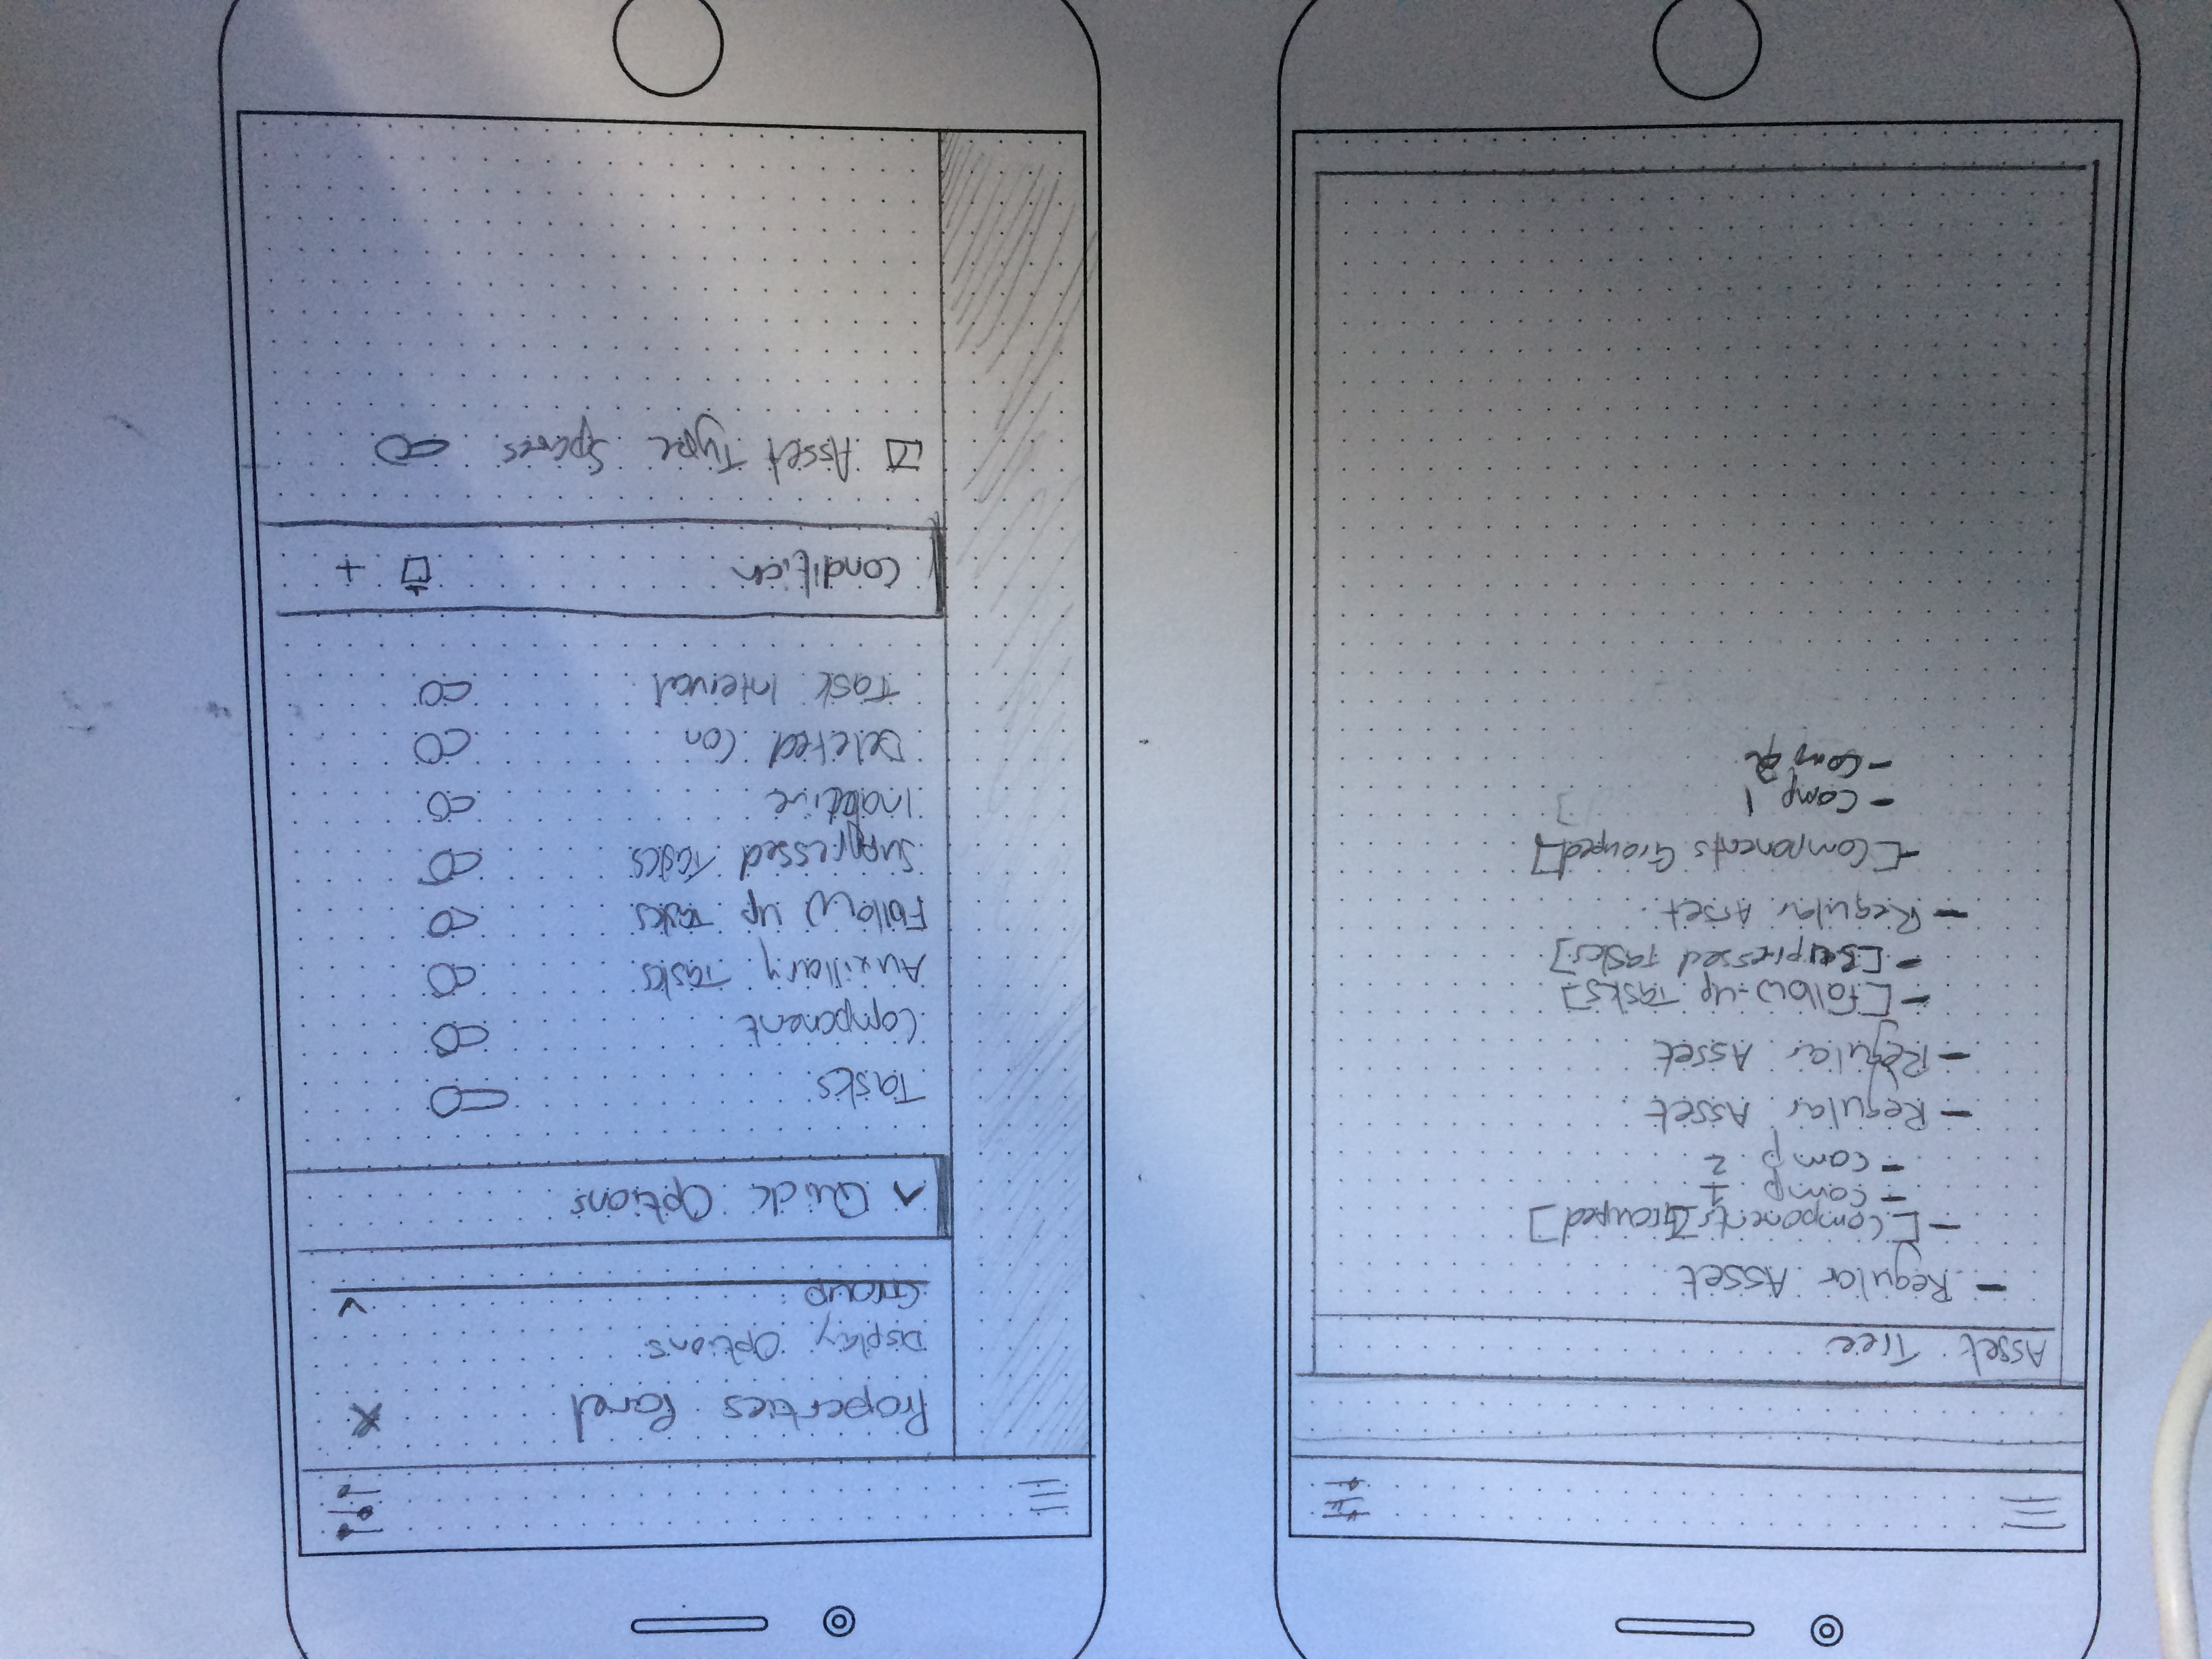 Asset Tree
- Regular Asset
- [Components Grouped]
- Comp 1
- Comp 2
- Regular Asset
- Regular Asset
- [Follow-up Tasks]
- [Supressed Tasks]
- Regular Asset
- [Components Grouped]
]
- Comp 1
- Comp 2
Properties Panel X
Display Options
Group
Quick Options
Tasks
Component
Auxillary Tasks
Follow up Tasks
Suppressed Tasks
Inactive
Deleted Con
Task Interval
Condition +
Asset Type Spares